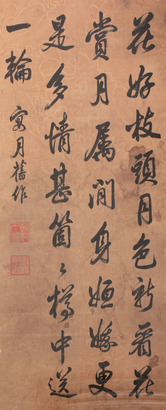 花好枝頭月色新看花
賞月屬閒身姮娥更
是多情甚箇〻樽中送
一輪
宴月舊作